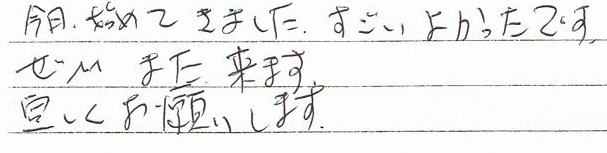 今日.始めてきました.すごいよかったです.
ぜひまた来ます.
宜しくお願いします.